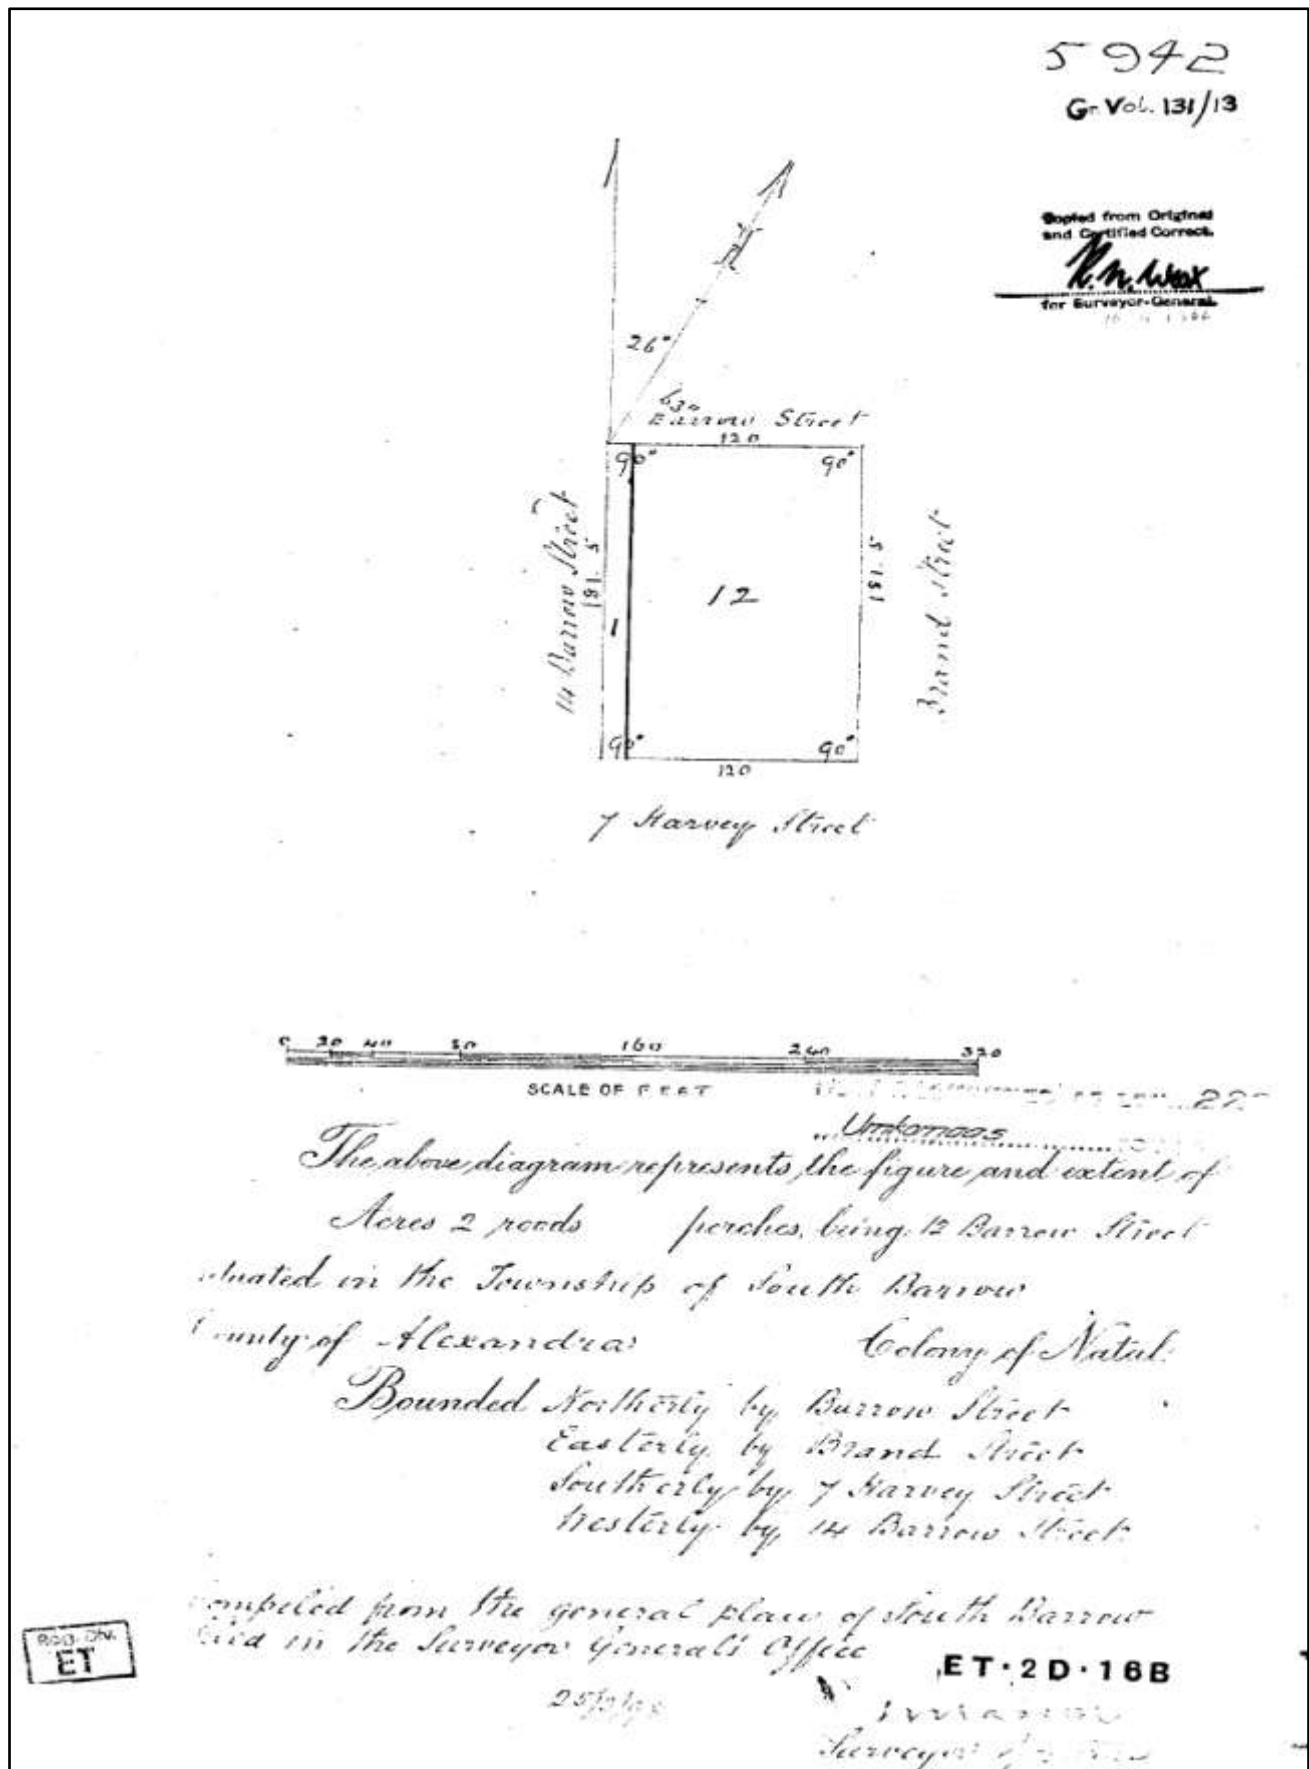 5942
Gr. Vol. 131/13
Copied from Original
and Certified Correct.
for Surveyor-General.
26°
63°
Barrow Street
120
90°
90°
14 Barrow Street
181.5
1
12
181.5
Brand Street
90°
90°
120
7 Harvey Street
0 20 40 80 160 240 320
SCALE OF FEET
Umkomaas
The above diagram represents the figure and extent of
Acres 2 roods perches, being 12 Barrow Street
situated in the Township of South Barrow
County of Alexandra Colony of Natal.
Bounded Northerly by Barrow Street
Easterly by Brand Street
Southerly by 7 Harvey Street
Westerly by 14 Barrow Street
Compiled from the general plan of South Barrow
filed in the Surveyor General's Office
REG. DIV.
ET
ET·2D·16B
Surveyor